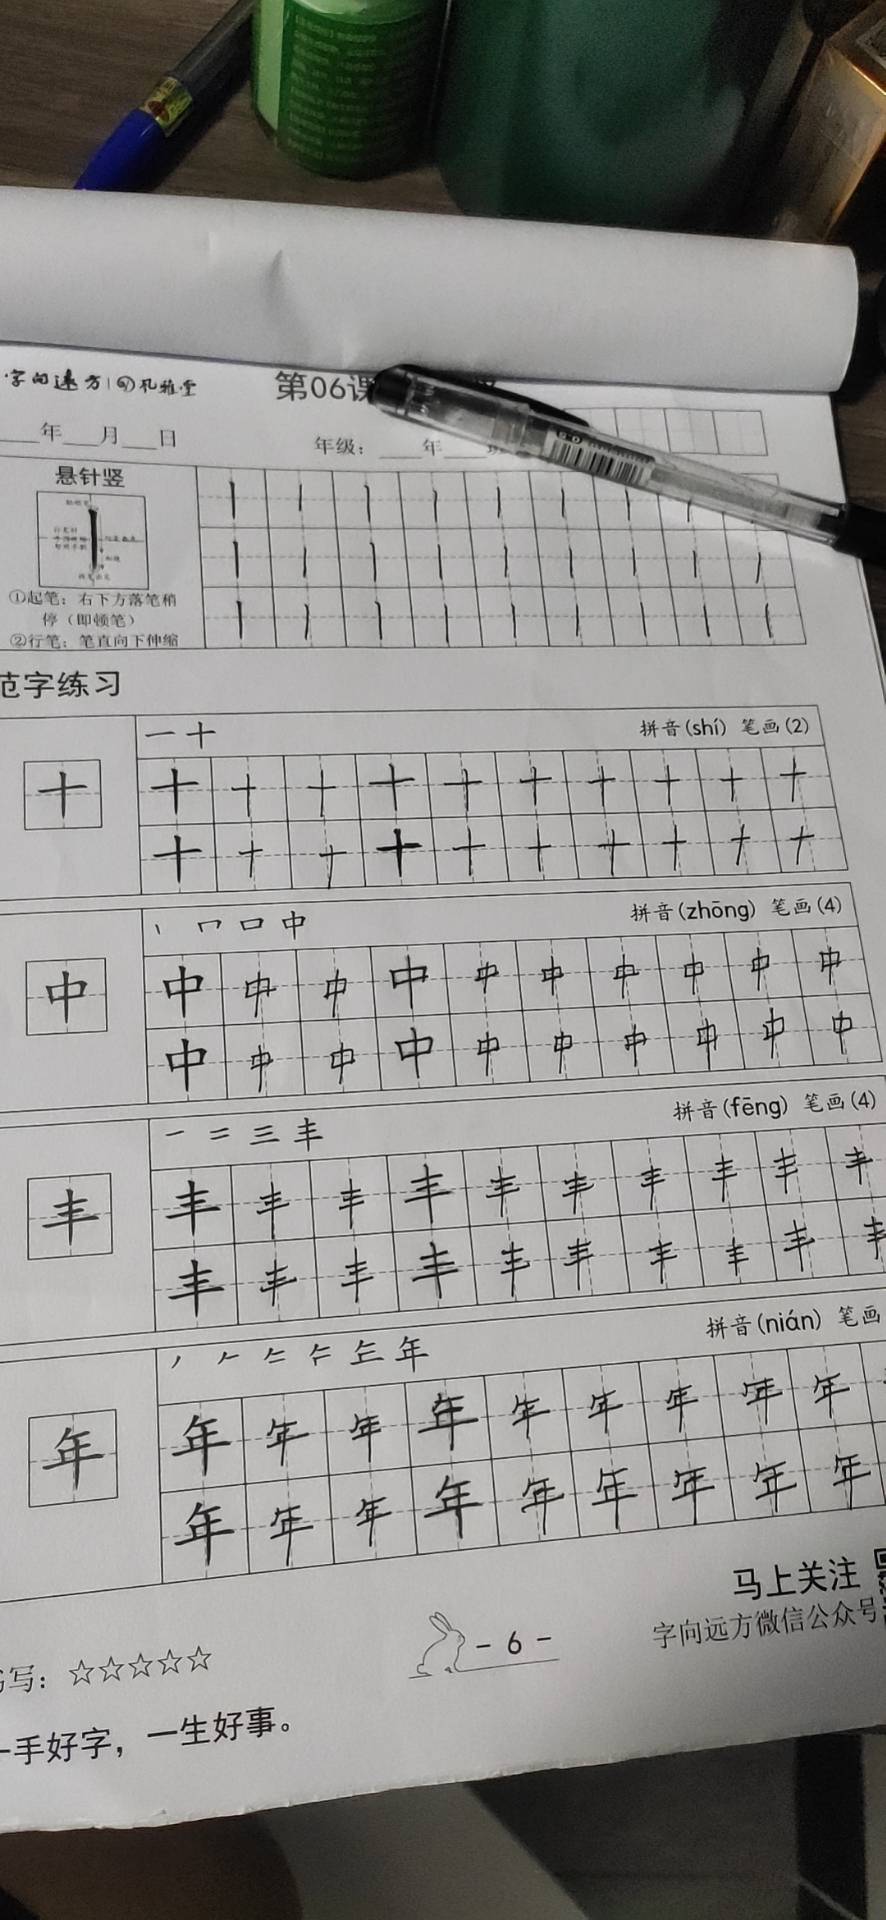 字向远方 孔雅堂
第06课
年 月 日
年级： 年
悬针竖
①起笔：右下方落笔稍
停（即顿笔）
②行笔：笔直向下伸缩
范字练习
一 十
拼音(shí) 笔画(2)
十 十 十 十 十 十 十 十 十 十 十
十 十 十 十 十 十 十 十 十 十
丨 冖 口 中
拼音(zhōng) 笔画(4)
中 中 中 中 中 中 中 中 中 中 中
中 中 中 中 中 中 中 中 中 中
一 二 三 丰
拼音(fēng) 笔画(4)
丰 丰 丰 丰 丰 丰 丰 丰 丰 丰 丰
丰 丰 丰 丰 丰 丰 丰 丰 丰 丰
年
拼音(nián) 笔画
年 年 年 年 年 年 年 年 年 年
年 年 年 年 年 年 年 年 年
马上关注
字向远方微信公众号
写：☆☆☆☆☆
- 6 -
一手好字，一生好事。